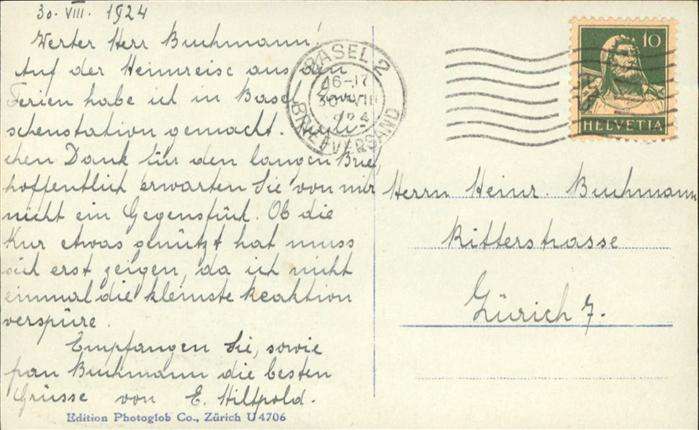 30. VIII. 1924
Werter Herr Buchmann!
Auf der Heimreise aus den
Ferien habe ich in Basel
schenstation gemacht.
chen Dank für den langen Brief
hoffentlich erwarten Sie von mir
nicht ein Gegenstück. Ob die
Kur etwas genützt hat muss
sich erst zeigen, da ich nicht
einmal die kleinste Reaktion
verspüre.
Empfangen Sie, sowie
Frau Buchmann die besten
Grüsse von E. Hiltpold.
Edition Photoglob Co., Zürich U 4706
BASEL 2
BRIEFVERSAND
10
HELVETIA
Herrn Heinr. Buchmann
Ritterstrasse
Zürich 7.